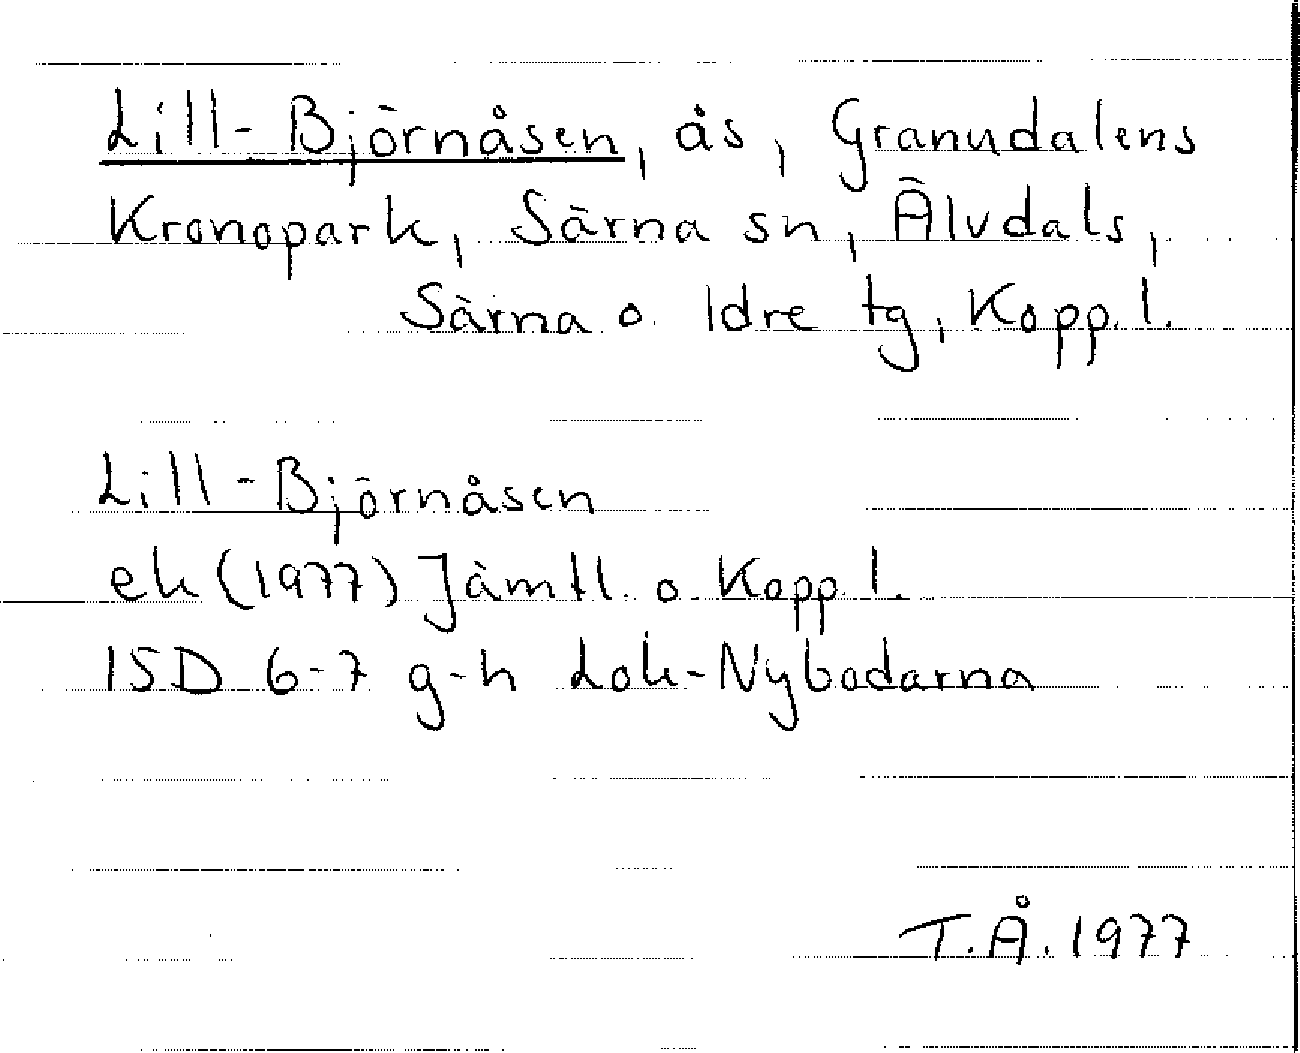 Lill-Björnåsen, ås, Granudalens
Kronopark, Särna sn, Älvdals,
Särna o. Idre tg, Kopp. l.
Lill-Björnåsen
ek (1977) Jämtl. o. Kopp. l.
15D 6-7 g-h Lok-Nybodarna
T.Å. 1977